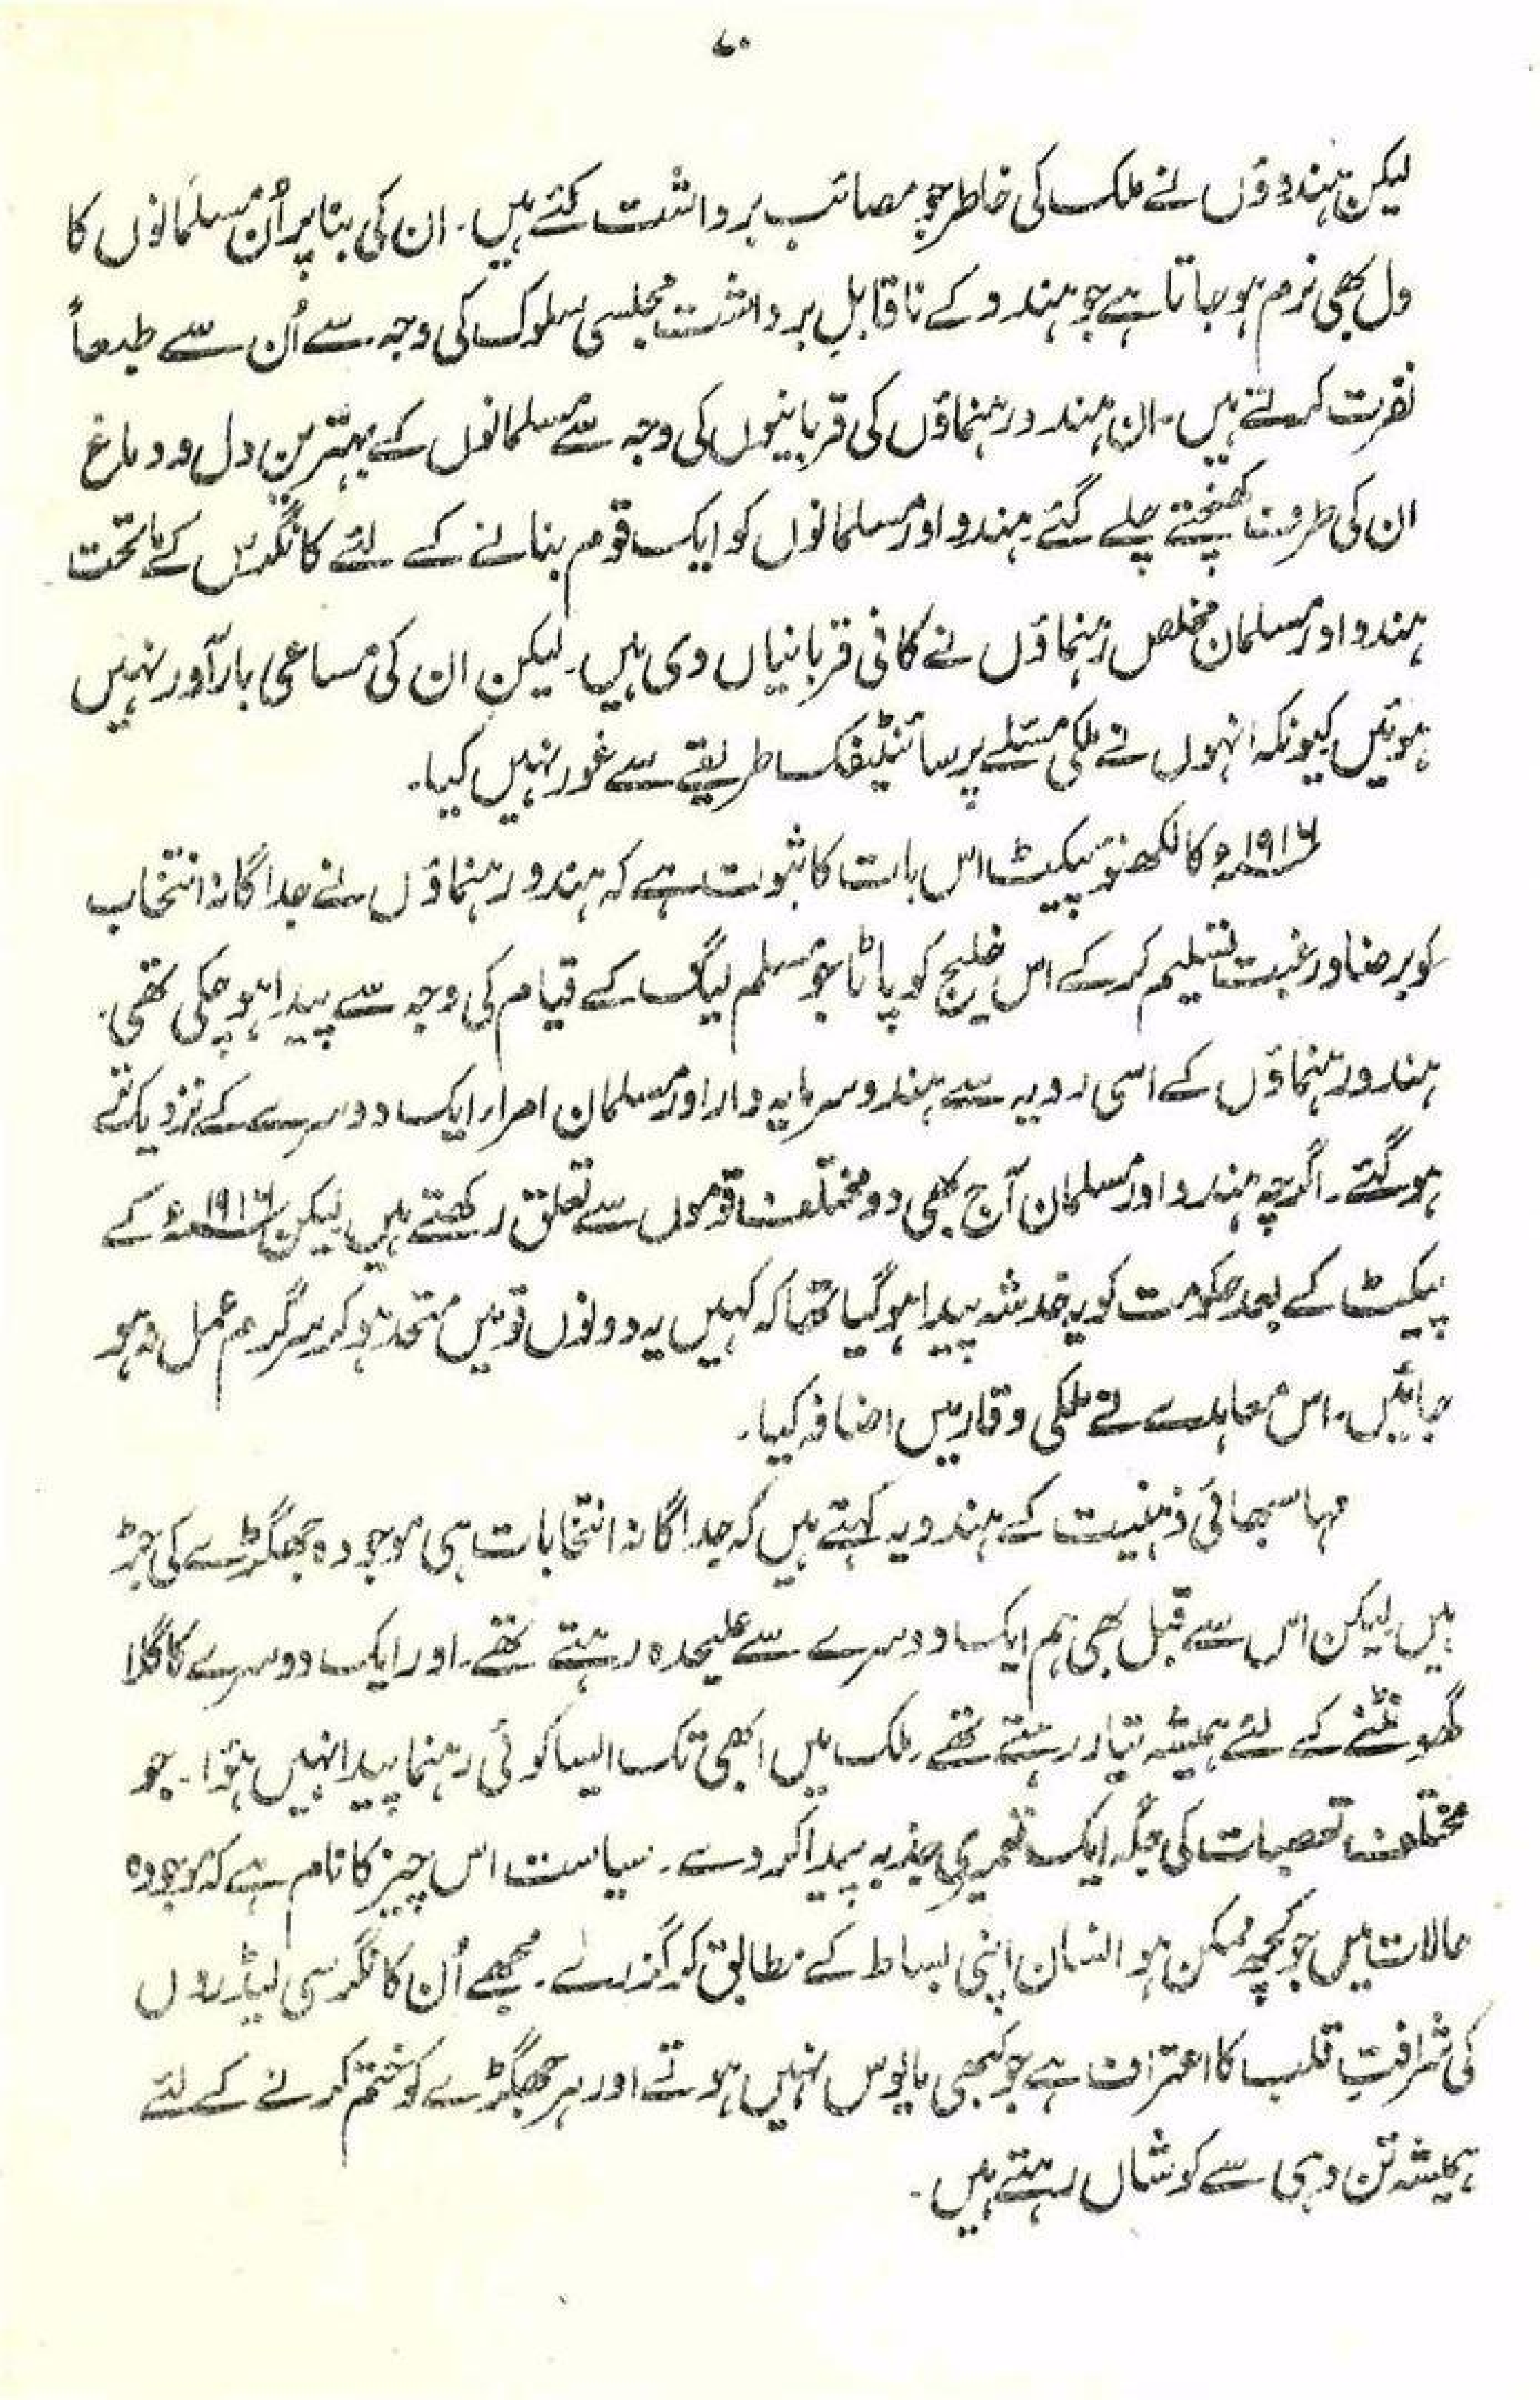 ۷۰
لیکن ہندوؤں نے ملک کی خاطر جو مصائب برداشت کئے ہیں۔ ان کی بنا پر اُن مسلمانوں کا
دل بھی نرم ہو جاتا ہے جو ہندو کے ناقابلِ برداشت مجلسی سلوک کی وجہ سے اُن سے طبعاً
نفرت کرتے ہیں۔ ان ہندو رہنماؤں کی قربانیوں کی وجہ سے مسلمانوں کے بہترین دل و دماغ
ان کی طرف کھنچتے چلے گئے۔ ہندو اور مسلمانوں کو ایک قوم بنانے کے لئے کانگرس کے ماتحت
ہندو اور مسلمان مخلص رہنماؤں نے کافی قربانیاں دی ہیں۔ لیکن ان کی مساعی بارآور نہیں
ہوئیں کیونکہ انہوں نے ملکی مسئلے پر سائنٹیفک طریقے سے غور نہیں کیا۔
۱۹۱۶ء کا لکھنؤ پیکٹ اس بات کا ثبوت ہے کہ ہندو رہنماؤں نے جداگانہ انتخاب
کو برضا و رغبت تسلیم کر کے اس خلیج کو پاٹا جو مسلم لیگ کے قیام کی وجہ سے پیدا ہو چکی تھی۔
ہندو رہنماؤں کے اسی رویہ سے ہندو سرمایہ دار اور مسلمان امراء ایک دوسرے کے نزدیک تر
ہو گئے۔ اگرچہ ہندو اور مسلمان آج بھی دو مختلف قوموں سے تعلق رکھتے ہیں لیکن ۱۹۱۶ء کے
پیکٹ کے بعد حکومت کو یہ خدشہ پیدا ہو گیا تھا کہ کہیں یہ دونوں قومیں متحد ہو کر سرگرم عمل نہ ہو
جائیں۔ اس معاہدے نے ملکی وقار میں اضافہ کیا۔
مہاسبھائی ذہنیت کے ہندو یہ کہتے ہیں کہ جداگانہ انتخابات ہی موجودہ جھگڑے کی جڑ
ہیں لیکن اس سے قبل بھی ہم ایک دوسرے سے علیحدہ رہتے تھے۔ اور ایک دوسرے کا گلا
گھونٹنے کے لئے ہمیشہ تیار رہتے تھے۔ ملک میں ابھی تک ایسا کوئی رہنما پیدا نہیں ہؤا۔ جو
مختلف تعصبات کی جگہ ایک تعمیری جذبہ پیدا کر دے۔ سیاست اس چیز کا نام ہے کہ موجودہ
حالات میں جو کچھ ممکن ہو انسان اپنی بساط کے مطابق کر گزرے۔ مجھے اُن کانگرسی لیڈروں
کی شرافتِ قلب کا اعتراف ہے جو کبھی مایوس نہیں ہوتے اور ہر جھگڑے کو ختم کرنے کے لئے
ہمیشہ تن دہی سے کوشاں رہتے ہیں۔